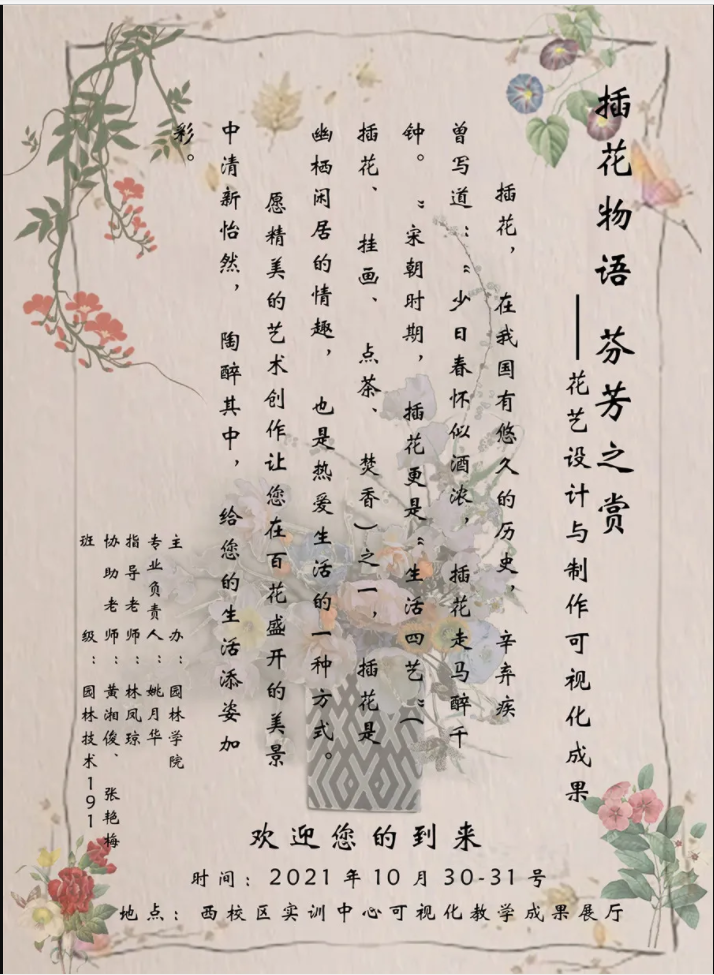 插花物语 芬芳之赏
——花艺设计与制作可视化成果
插花，在我国有悠久的历史，辛弃疾
曾写道：“少日春怀似酒浓，插花走马醉千
钟。”宋朝时期，插花更是“生活四艺”（
插花、挂画、点茶、焚香）之一，插花是
幽栖闲居的情趣，也是热爱生活的一种方式。
愿精美的艺术创作让您在百花盛开的美景
中清新怡然，陶醉其中，给您的生活添姿加
彩。
主办：园林学院
专业负责人：姚月华
指导老师：林凤琼
协助老师：黄湘俊、张艳梅
班级：园林技术191
欢迎您的到来
时间：2021年10月30-31号
地点：西校区实训中心可视化教学成果展厅